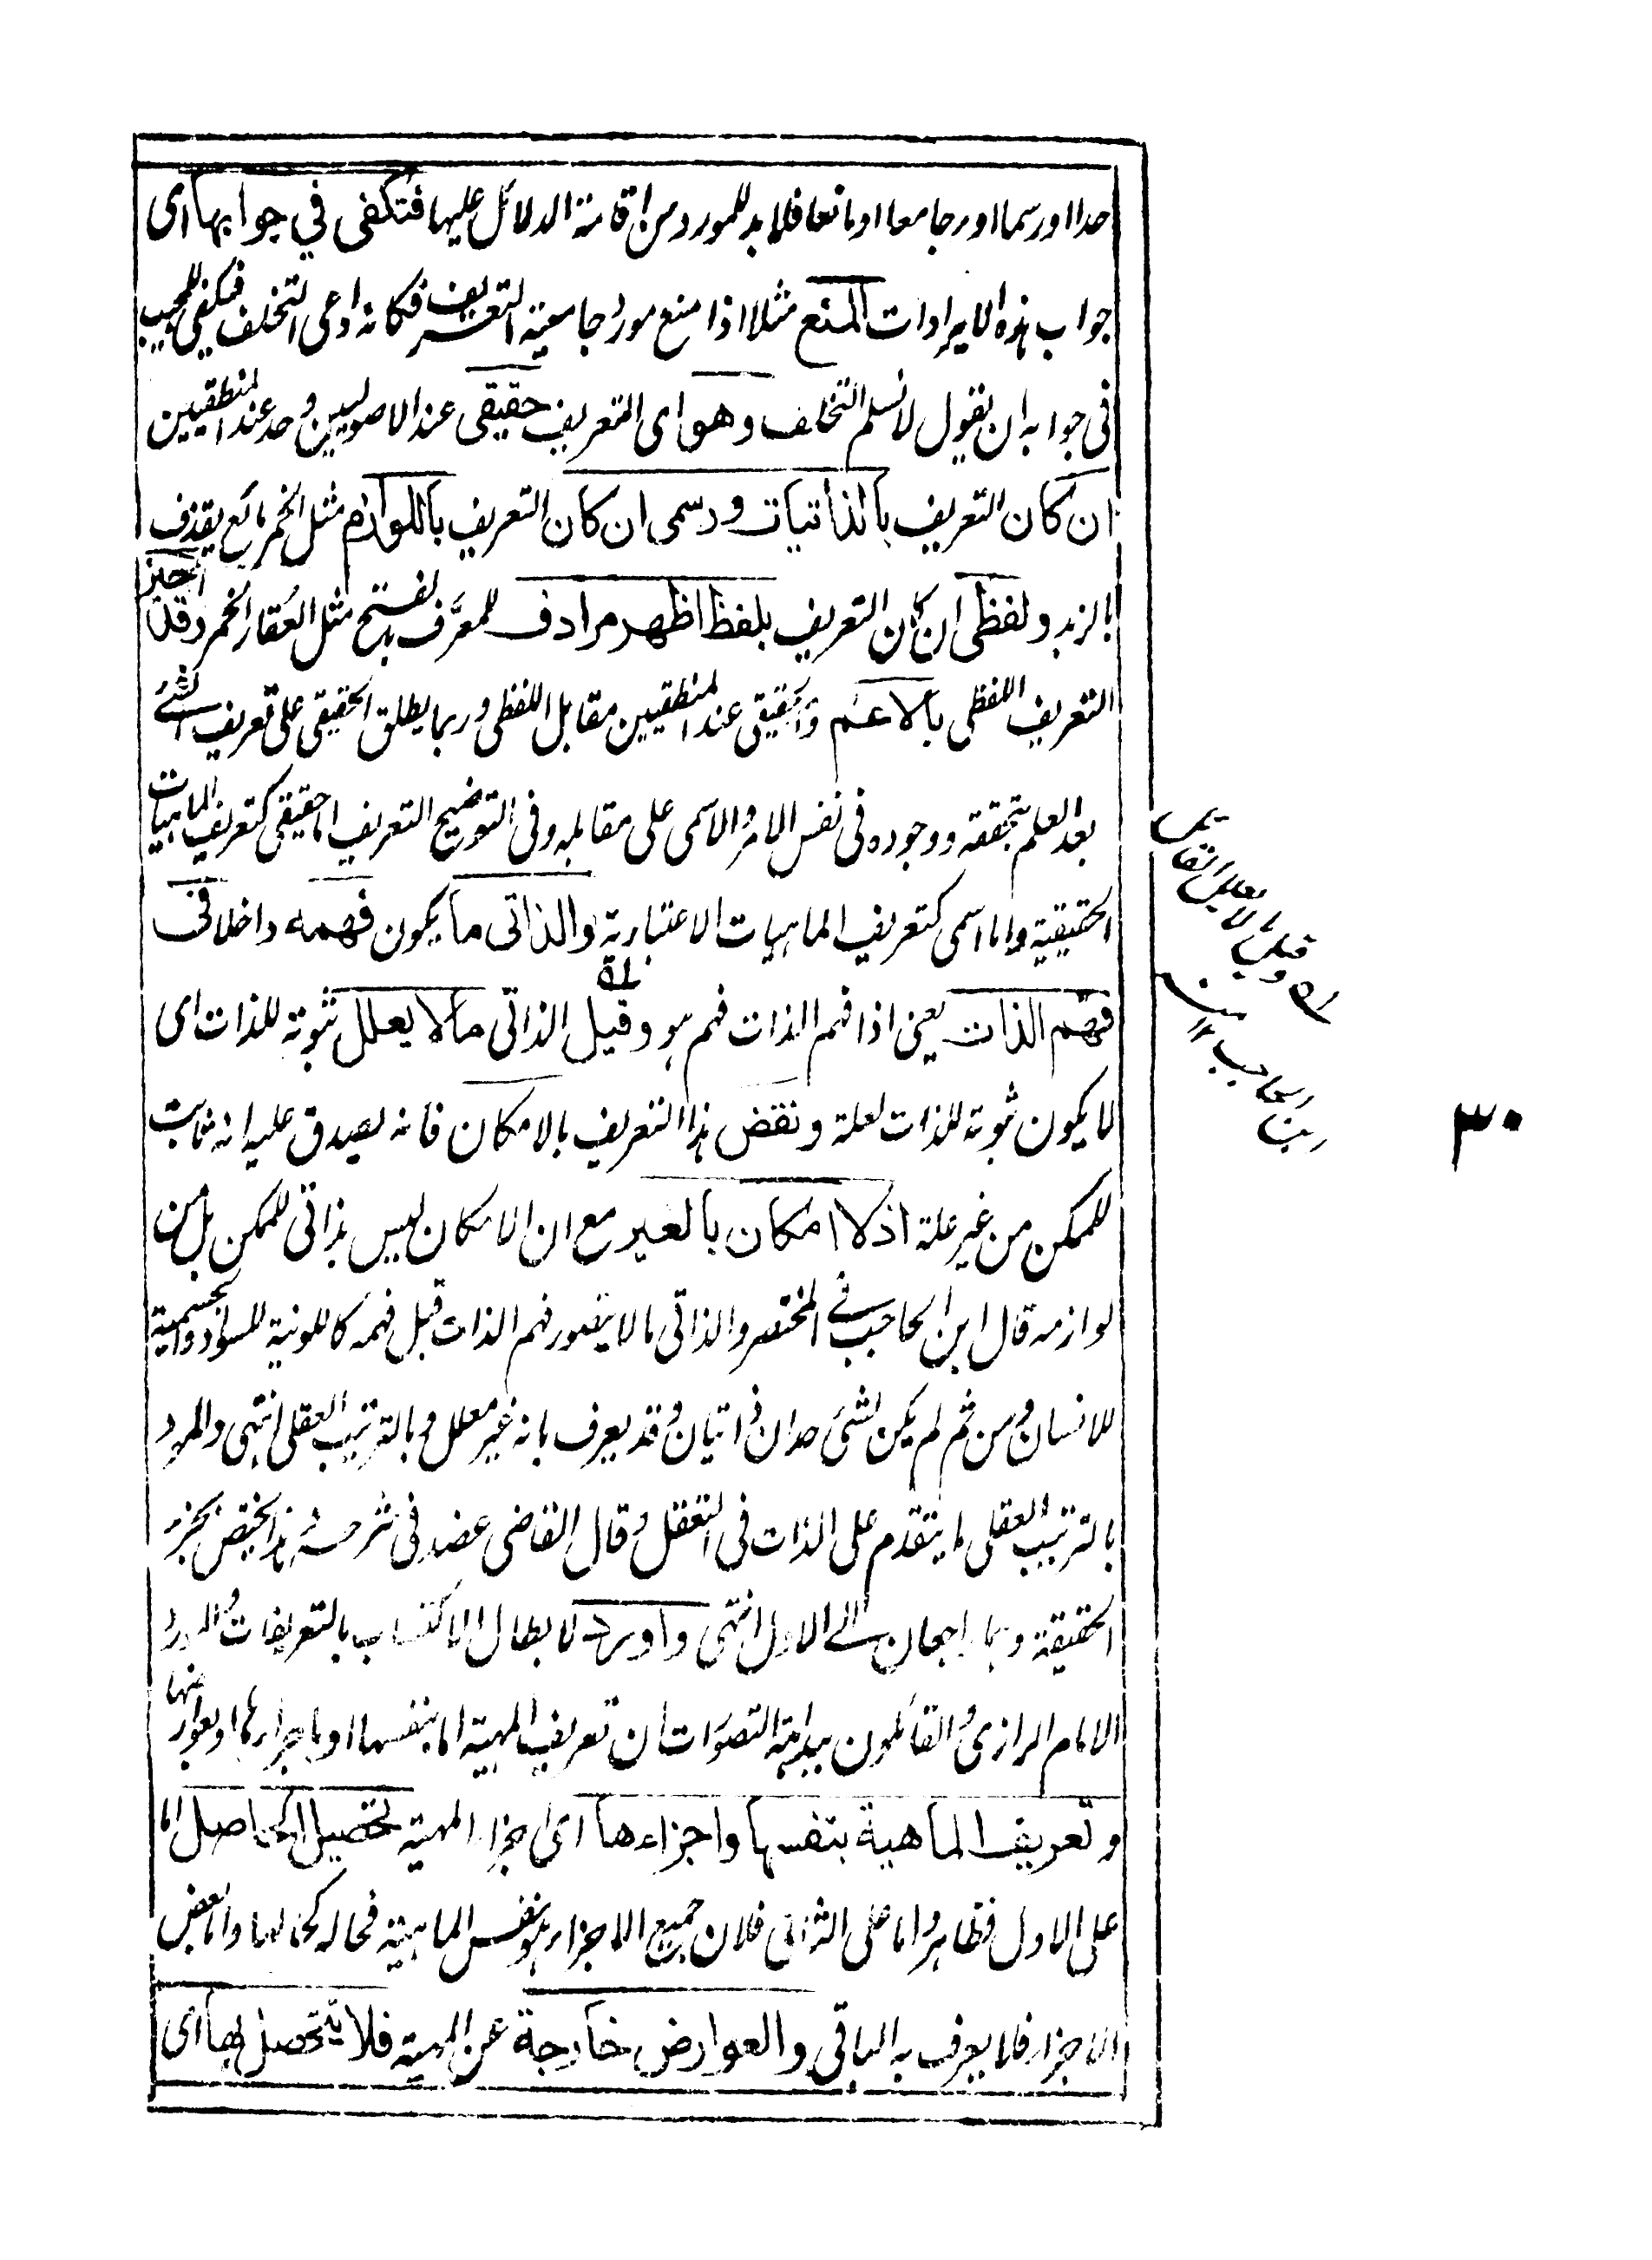 حدا اورسما اورجامعا او مانعا فلا بد للمورد من اقامة الدلائل عليها فتكفى في جوابها اى
جواب هذه الايرادات المنع مثلا اذا منع مورد جامعية التعريف فكانه ادعى التخلف فيكفى للمجيب
فى جوابه ان يقول لا نسلم التخلف وهو اى التعريف حقيقى عند الاصوليين وحد عند المنطقيين
ان كان التعريف بالذاتيات ورسمى ان كان التعريف باللوازم مثل الخمر مائع يقذف
بالزبد ولفظى ان كان التعريف بلفظ اظهر مرادف للمعرَّف بفتح مثل العُقار الخمر وقد اجيز
التعريف اللفظى بالاعم والحقيقى عند المنطقيين مقابل اللفظى وربما يطلق الحقيقى على تعريف الشئ
بعد العلم بتحققه ووجوده فى نفس الامر والاسمى على مقابله وفى التوضيح التعريف اما حقيقى كتعريف الماهيات
الحقيقية واما اسمى كتعريف الماهيات الاعتبارية والذاتى ما يكون فهمه داخلا فى
فهم الذات يعنى اذا فهم الذات فهم هو وقيل الذاتى ما لا يعلل ثبوته للذات اى
لا يكون ثبوته للذات لعلة ونقض هذا التعريف بالامكان فانه يصدق عليه انه ثابت
للممكن من غير علة اذ لا امكان بالغير مع ان الامكان ليس بذاتى للممكن بل من
لوازمه قال ابن الحاجب في المختصر والذاتى ما لا يتصور فهم الذات قبل فهمه كاللونية للسواد والجسمية
للانسان ومن ثم لم يكن لشئ حدان ذاتيان وقد يعرف بانه غير معلل وبالترتيب العقلى انتهى والمراد
بالترتيب العقلى ما يتقدم على الذات فى التعقل وقال القاضى عضد فى شرحه هذا يختص بجزء
الحقيقة وهما راجعان الى الاول انتهى واورد لابطال الاكتساب بالتعريفات والمورد
الامام الرازى والقائلون ببداهة التصورات ان تعريف المهية اما بنفسها او باجزائها او بعوارضها
وتعريف الماهية بنفسها واجزاءها اى اجزاء المهية تحصيل الحاصل اما
على الاول فظاهر واما على الثانى فلان جميع الاجزاء هو نفس الماهية فحاله كحالها واما بعض
الاجزاء فلا يعرف به الباقى والعوارض خارجة عن المهية فلا يتحصل بها اى
له وقيل ما لا يعلل القائل
ابن الحاجب ١٢ منه
٣٠